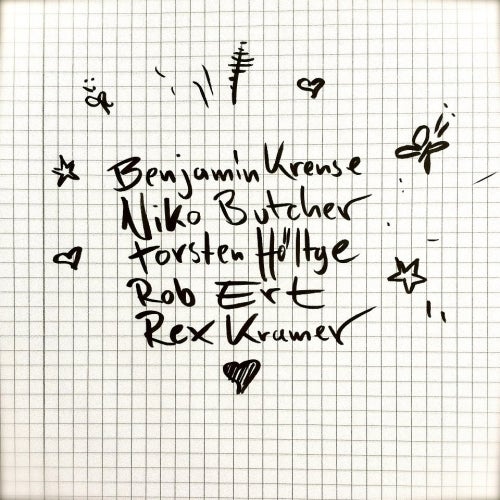 Benjamin Krense
Niko Butcher
Torsten Höltge
Rob Ert
Rex Kramer